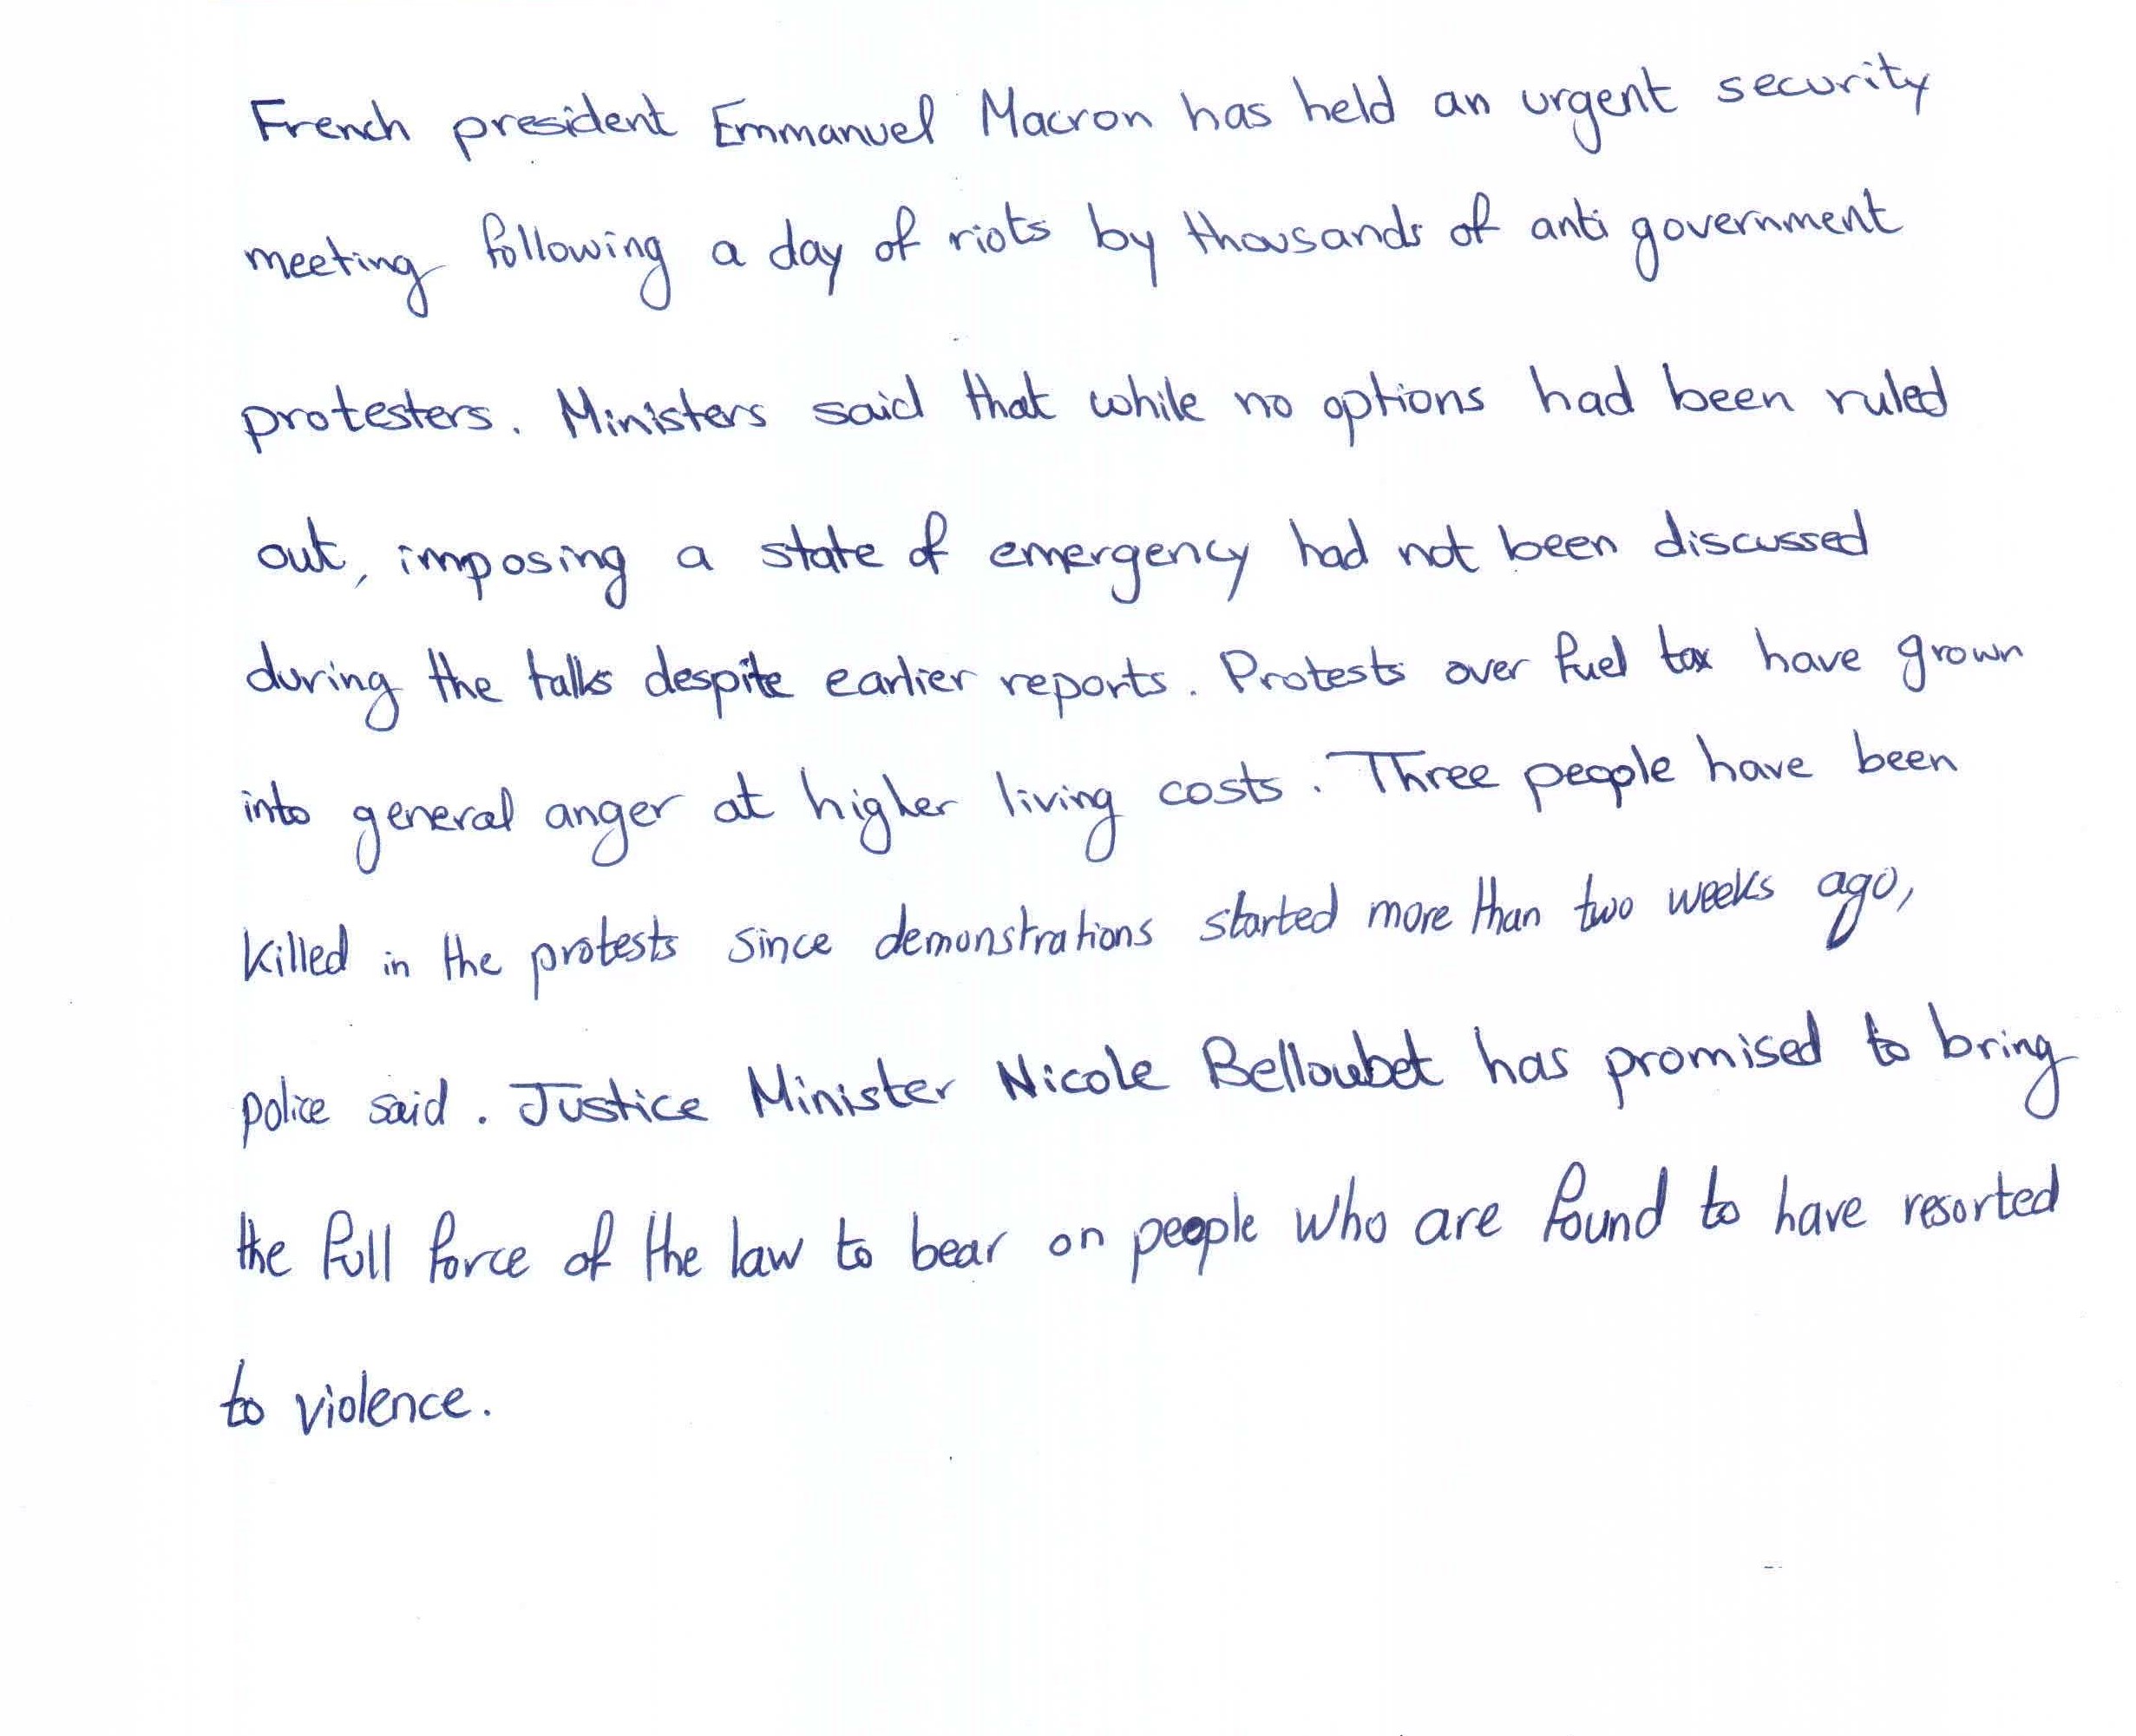 French president Emmanuel Macron has held an urgent security
meeting following a day of riots by thousands of anti government
protesters. Ministers said that while no options had been ruled
out, imposing a state of emergency had not been discussed
during the talks despite earlier reports. Protests over fuel tax have grown
into general anger at higher living costs. Three people have been
killed in the protests since demonstrations started more than two weeks ago,
police said. Justice Minister Nicole Belloubet has promised to bring
the full force of the law to bear on people who are found to have resorted
to violence.